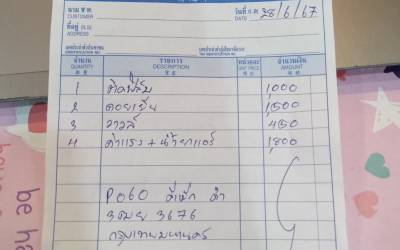 นาม
CUSTOMER
วันที่
DATE 28/6/67
ที่อยู่
ADDRESS
จำนวน
QUANTITY
รายการ
DESCRIPTION
หน่วยละ
UNIT PRICE
จำนวนเงิน
AMOUNT
1 ติดฟิล์ม 1,000
2 คอยเย็น 1,500
3 วาวล์ 450
4 ค่าแรง + น้ำยาแอร์ 1,800
PO60 ดีแม็ก ดำ
3676
กรุงเทพมหานคร
be ha